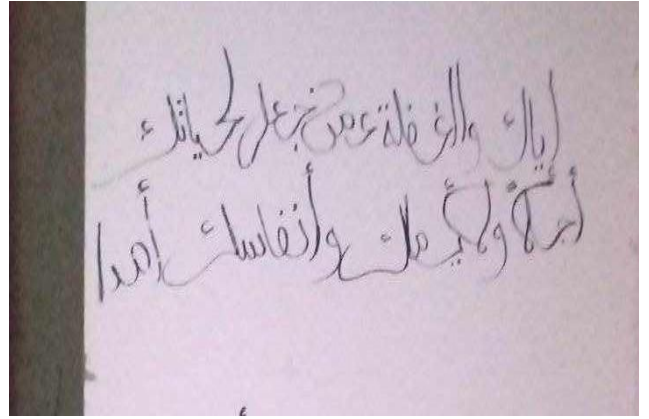 إياك والغفلة عمن جعل لحياتك
أجلا ولأيامك وأنفاسك أمدا